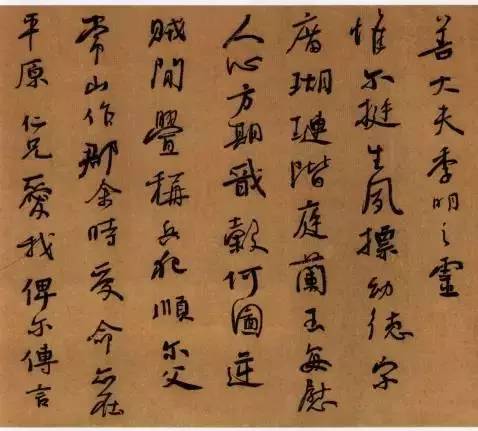 善大夫季明之靈
惟尔挺生夙標幼德宗
廟瑚璉階庭蘭玉每慰
人心方期戩穀何圖逆
賊間釁稱兵犯順尔父
常山作郡余時受命亦在
平原仁兄愛我俾尔傳言